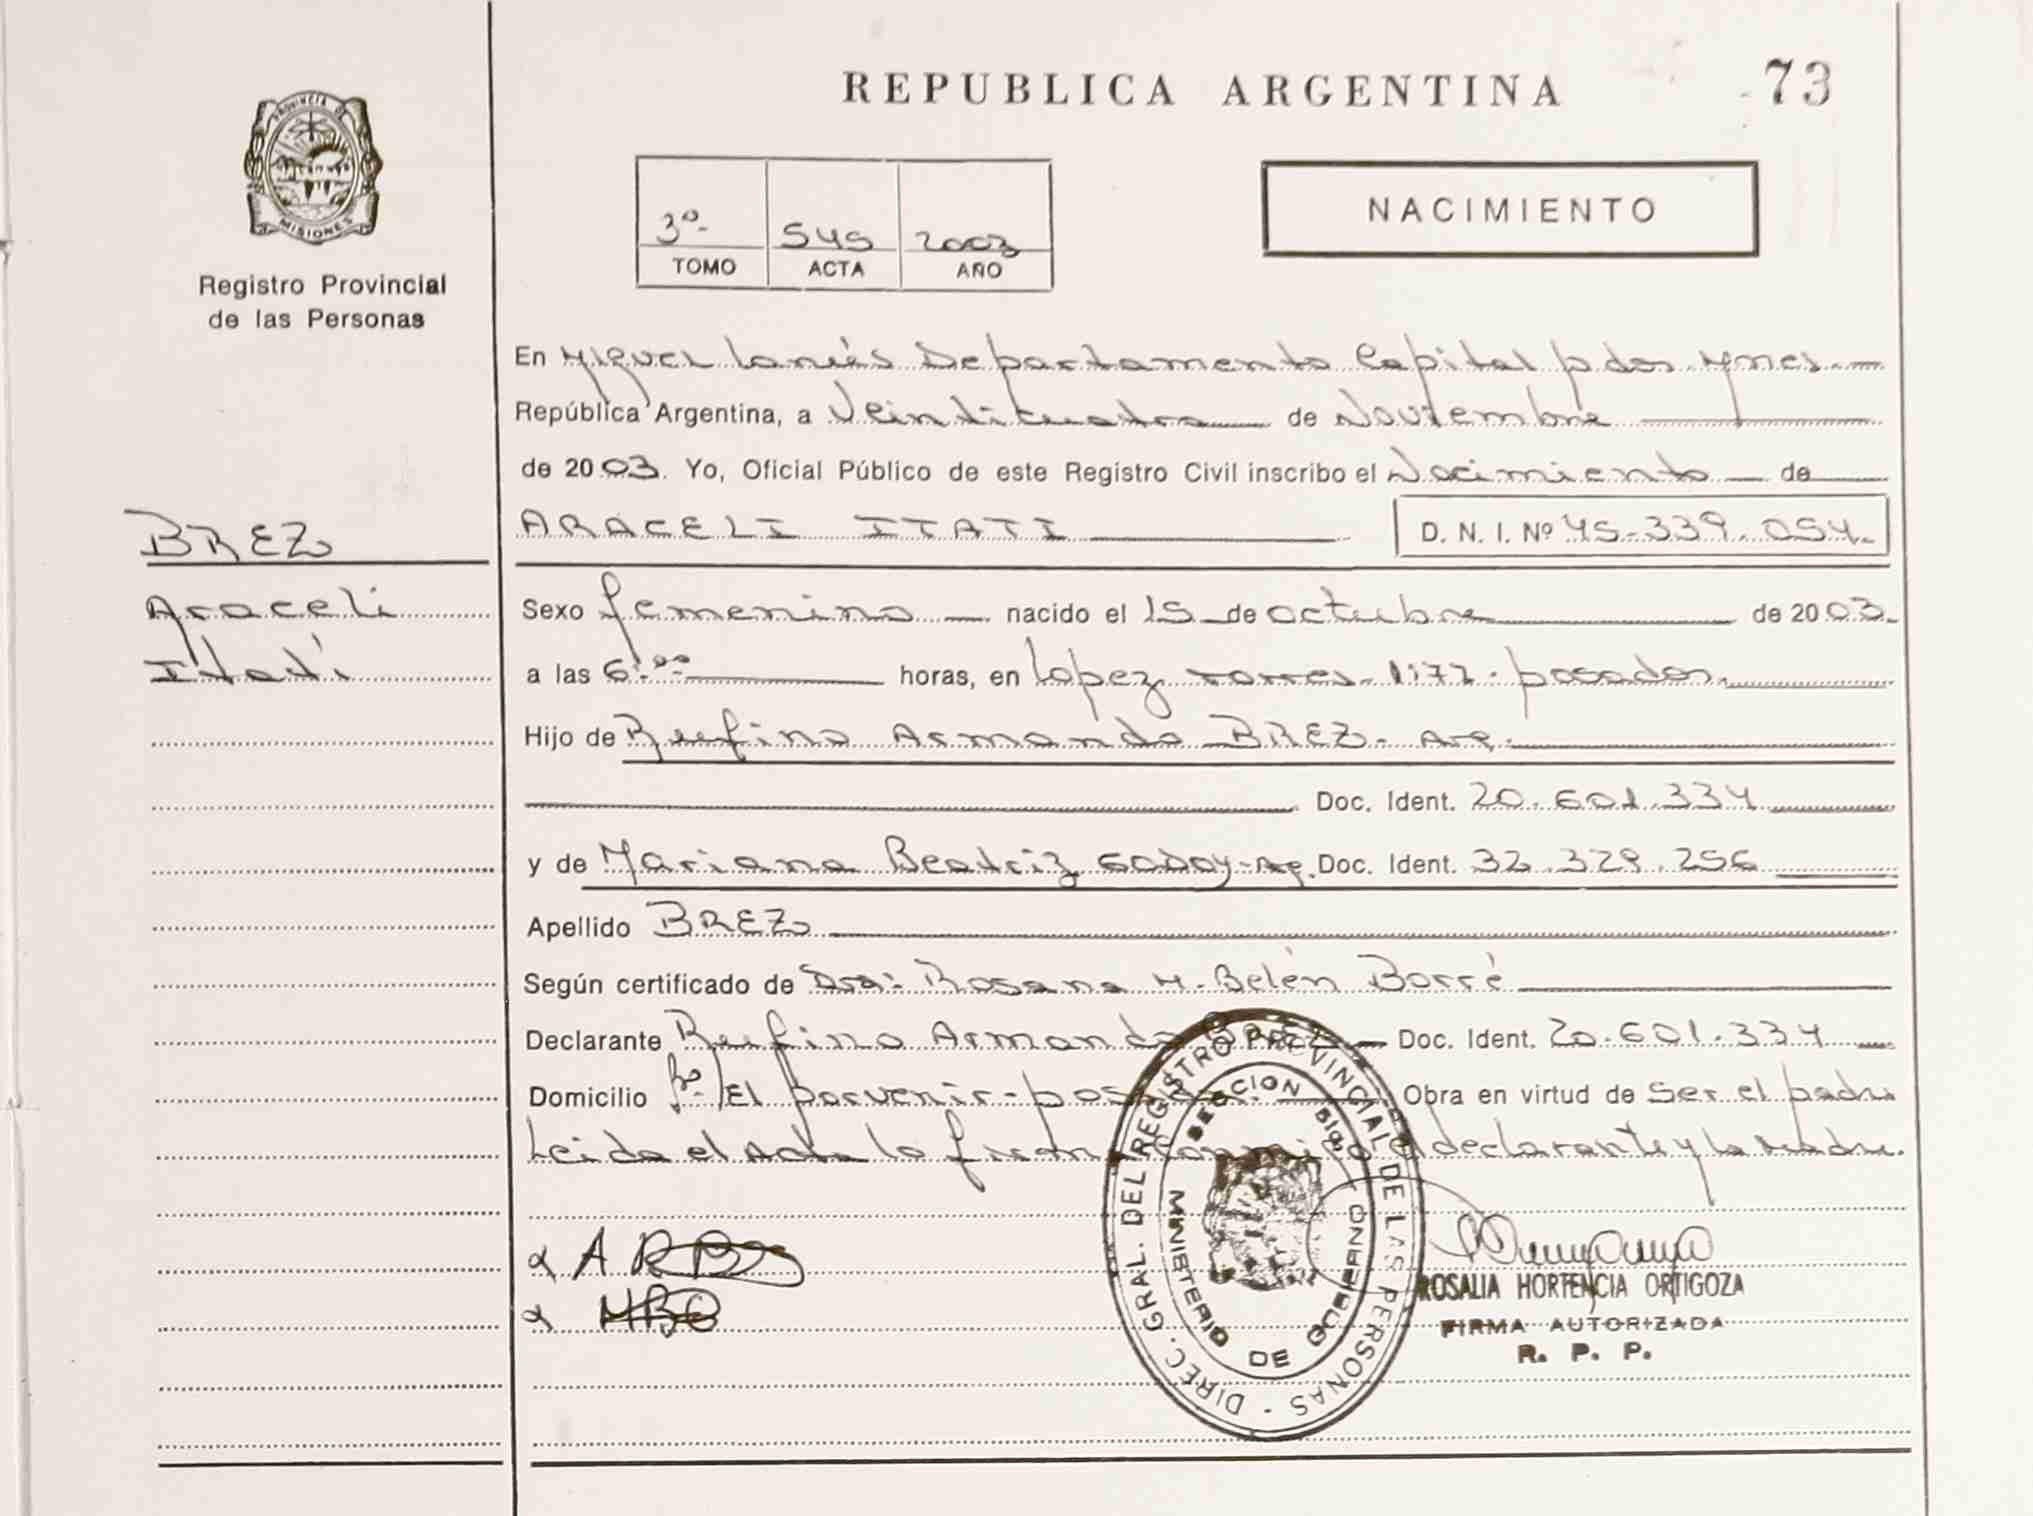 REPUBLICA ARGENTINA
73
PROVINCIA DE
MISIONES
Registro Provincial
de las Personas
3º 545 2003
TOMO ACTA AÑO
NACIMIENTO
En Miguel Lanús Departamento Capital pdos. Mnes.
República Argentina, a Veinticuatro de Noviembre
de 2003. Yo, Oficial Público de este Registro Civil inscribo el Nacimiento de
BREZ
ARACELI ITATI D. N. I. Nº 45.339.054.
Araceli
Itatí
Sexo femenino nacido el 15 de octubre de 2003.
a las 6.00 horas, en Lopez torres 1177. posadas.
Hijo de Rufino Armando BREZ- Arg.
Doc. Ident. 20.601.334
y de Mariana Beatriz GODOY-Arg. Doc. Ident. 32.329.256
Apellido BREZ
Según certificado de Dra: Rosana M. Belén Borré
Declarante Rufino Armando BREZ Doc. Ident. 20.601.334
Domicilio Bº El porvenir- Obra en virtud de Ser el padre
Leida el Acta la firman conmigo el declarante y la madre.
DIREC. GRAL. DEL REGISTRO PROVINCIAL DE LAS PERSONAS
MINISTERIO DE GOBIERNO
ROSALIA HORTENCIA ORTIGOZA
FIRMA AUTORIZADA
R. P. P.